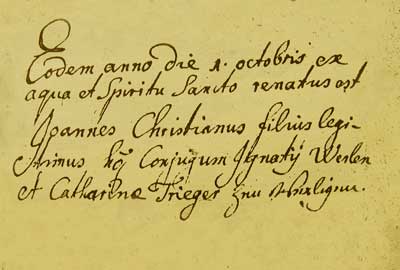 Eodem anno die 1. octobris ex
aqua et Spiritu Sancto renatus est
Joannes Christianus filius legi-
timus Conjugum Ignatij Werlen
et Catharinæ Trieger